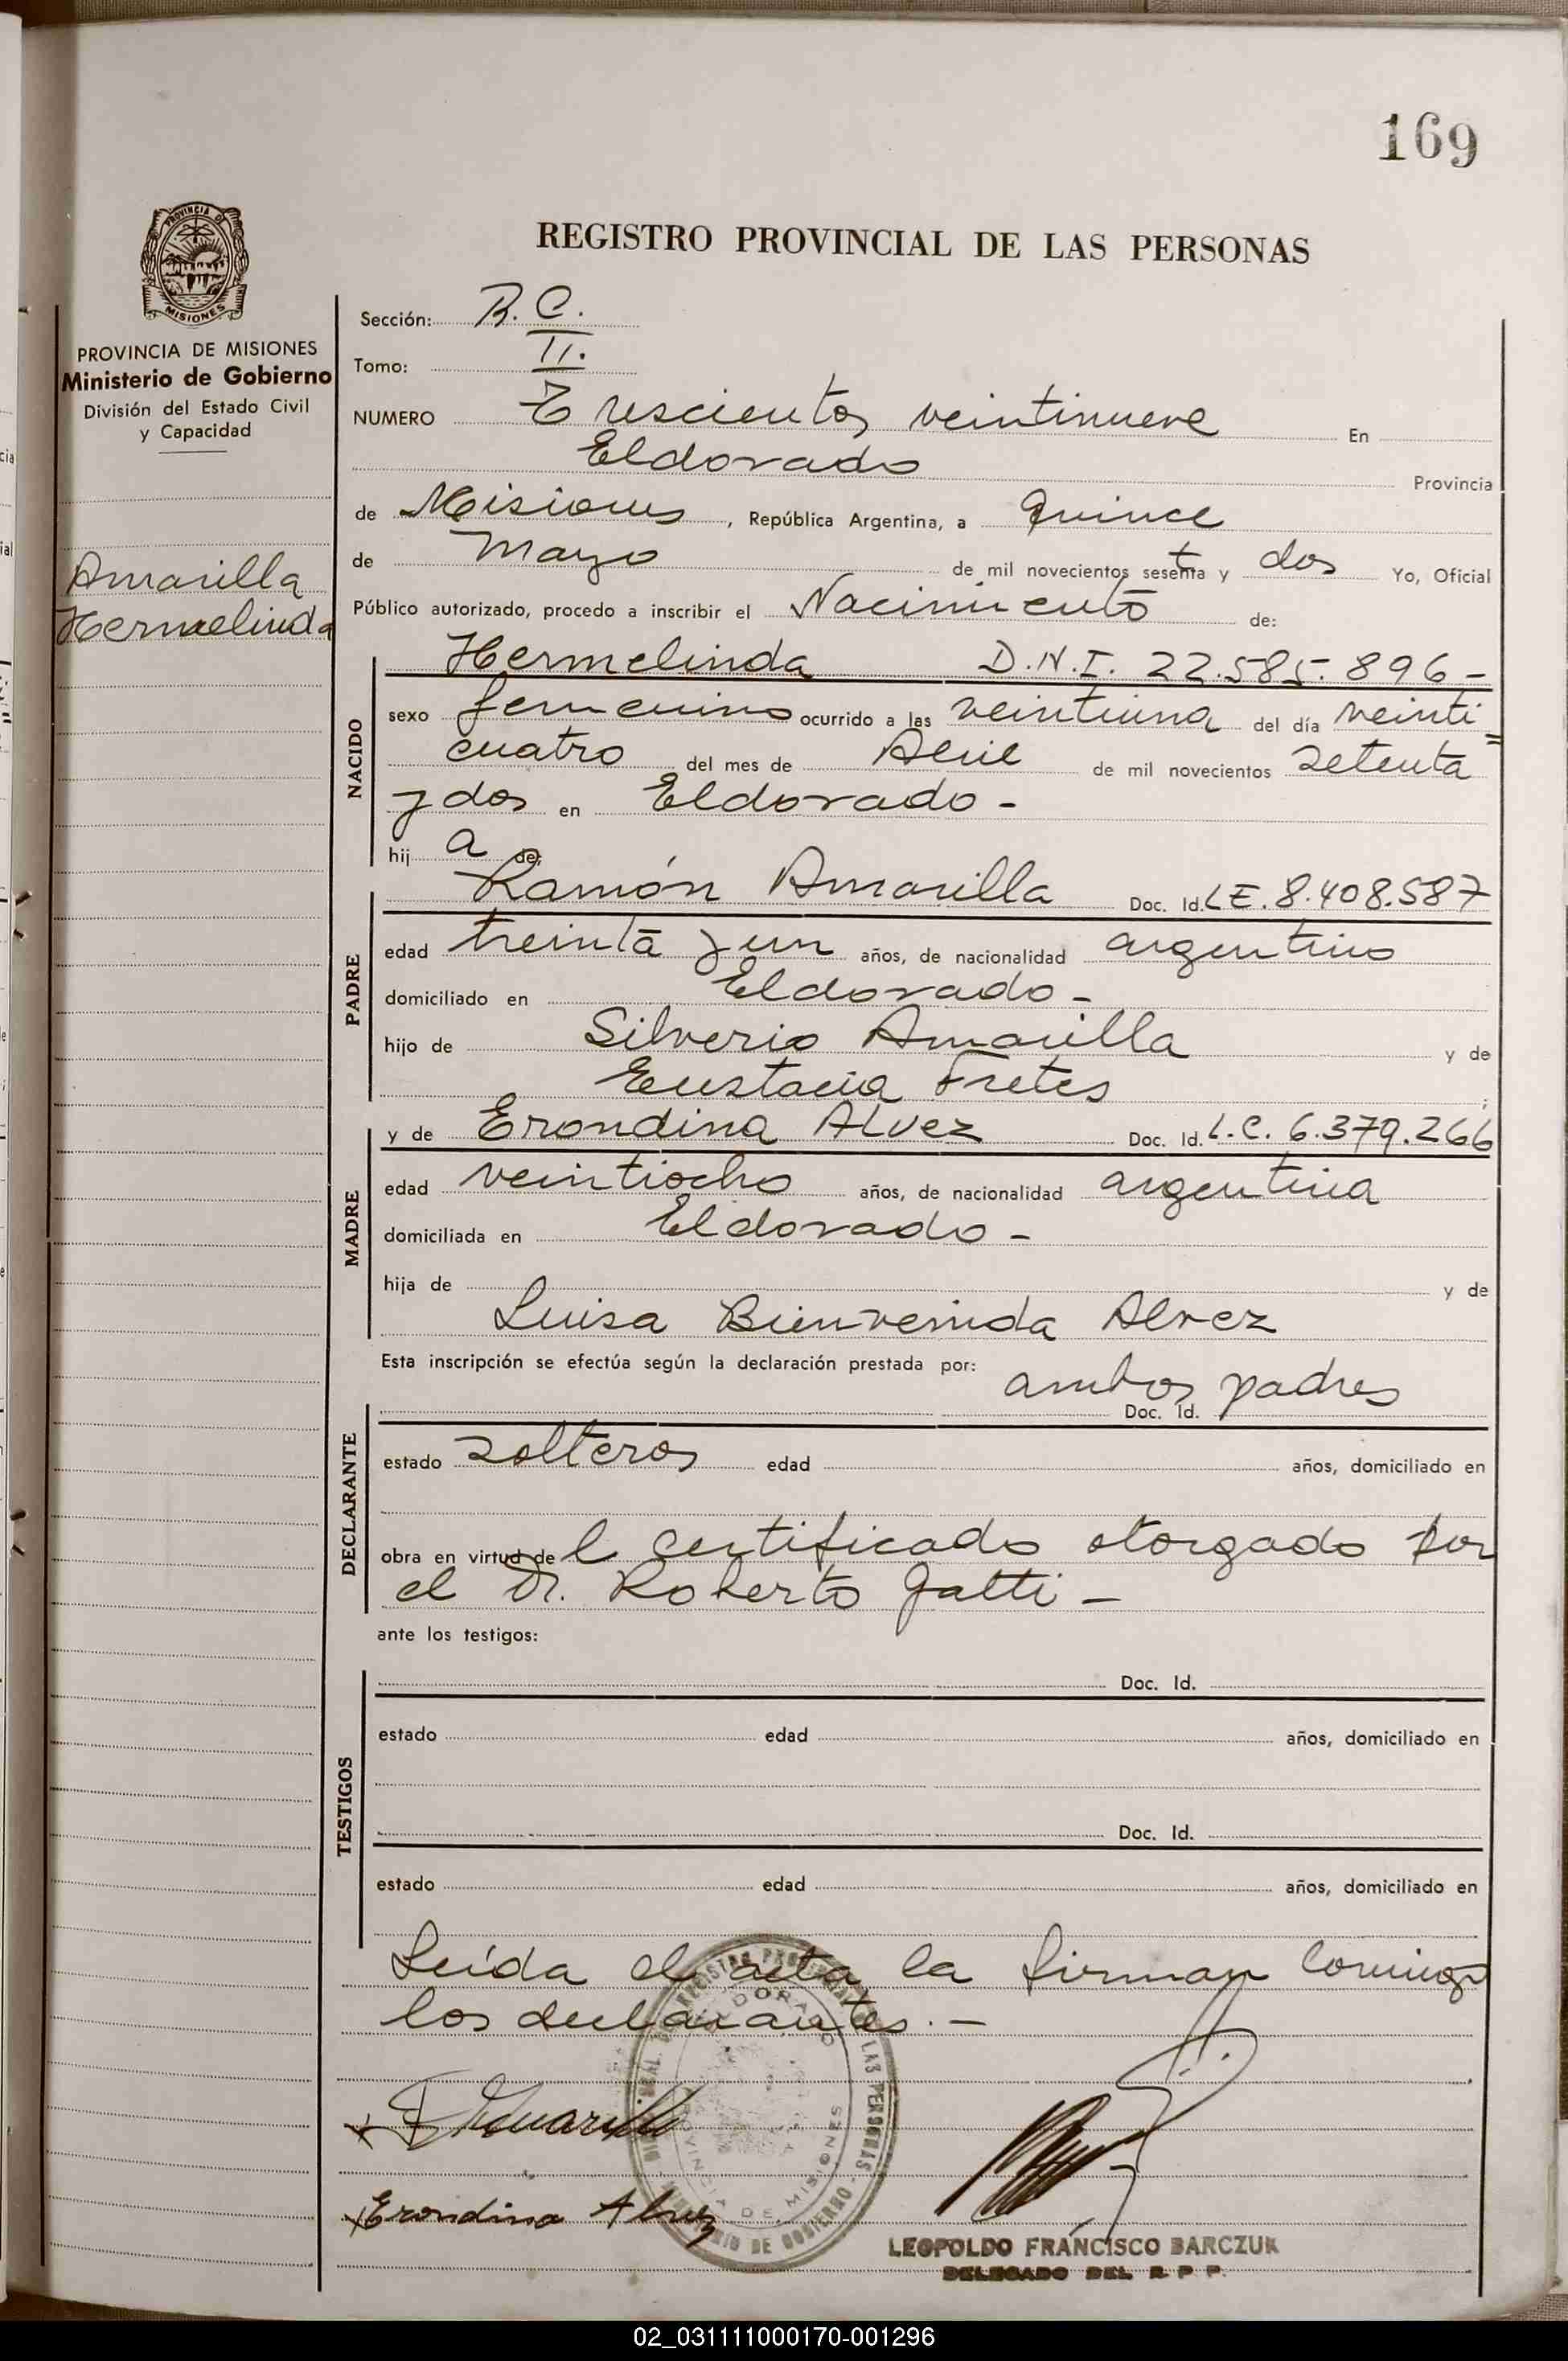 169
PROVINCIA DE
MISIONES
PROVINCIA DE MISIONES
Ministerio de Gobierno
División del Estado Civil
y Capacidad
Amarilla
Hermelinda
REGISTRO PROVINCIAL DE LAS PERSONAS
Sección: R. C.
Tomo: II.
NUMERO Trescientos veintinueve En
Eldorado Provincia
de Misiones, República Argentina, a quince
de Mayo de mil novecientos sesenta y dos Yo, Oficial
Público autorizado, procedo a inscribir el Nacimiento de:
NACIDO
Hermelinda D.N.I. 22.585.896-
sexo femenino ocurrido a las veintiuna del día veinti=
cuatro del mes de Abril de mil novecientos setenta
y dos en Eldorado-
hija de:
PADRE
Ramón Amarilla Doc. Id. LE. 8.408.587
edad treinta y un años, de nacionalidad argentino
domiciliado en Eldorado-
hijo de Silverio Amarilla y de
Eustacia Fretes;
MADRE
y de Erondina Alvez Doc. Id. L.C. 6.379.266
edad veintiocho años, de nacionalidad argentina
domiciliada en Eldorado-
hija de y de
Luisa Bienvenida Alvez
Esta inscripción se efectúa según la declaración prestada por: ambos padres
DECLARANTE
Doc. Id.
estado solteros edad años, domiciliado en
obra en virtud del certificado otorgado por
el Dr. Roberto Gatti-
ante los testigos:
TESTIGOS
Doc. Id.
estado edad años, domiciliado en
Doc. Id.
estado edad años, domiciliado en
Leída el acta la firman conmigo
los declarantes.-
ELDORADO
PROVINCIA DE MISIONES
Erondina Alvez
LEOPOLDO FRANCISCO BARCZUK
DELEGADO DEL R P P.
02_031111000170-001296